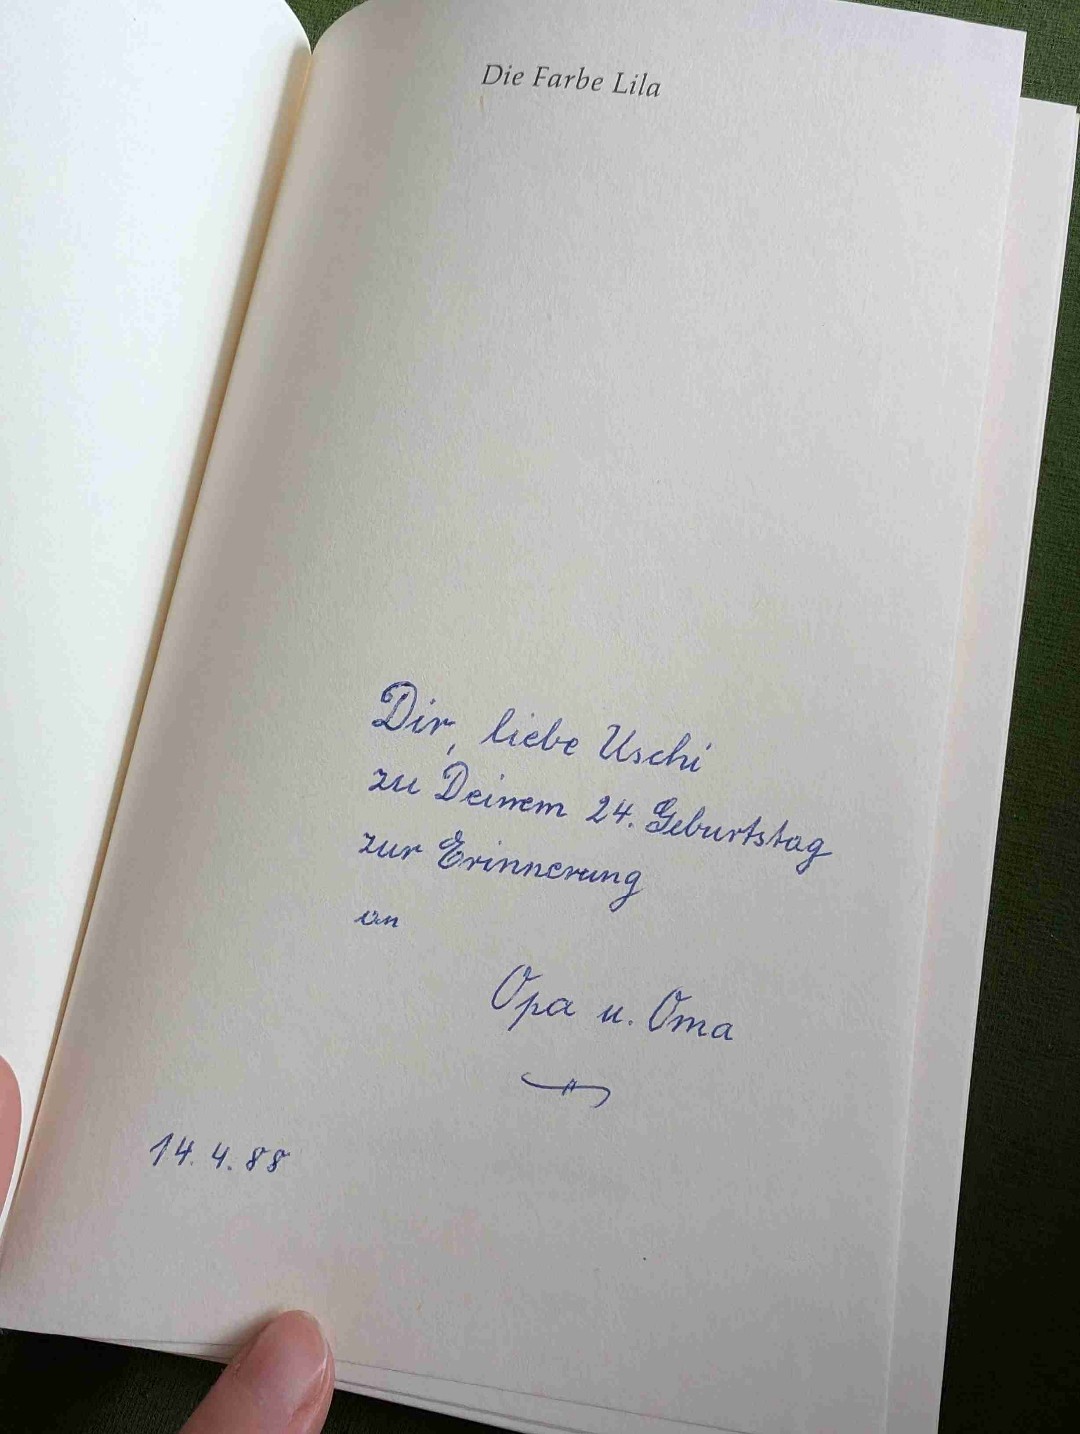 Die Farbe Lila
Dir, liebe Uschi
zu Deinem 24. Geburtstag
zur Erinnerung
an
Opa u. Oma
14. 4. 88